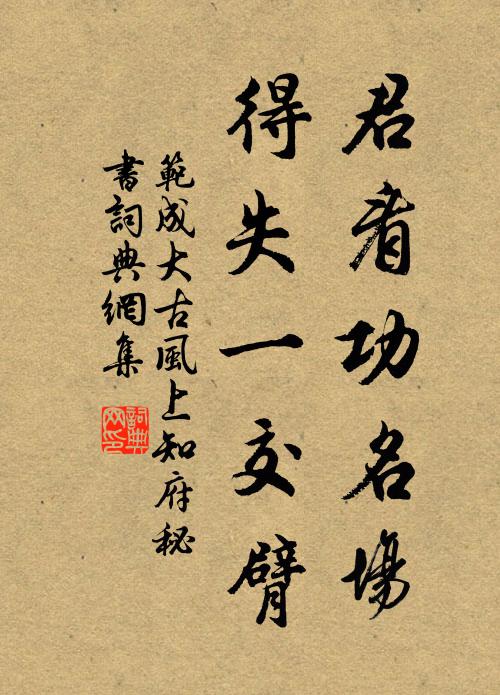 君看功名場
得失一交臂
範成大古風上知府秘
書詞典網集
詞典網印